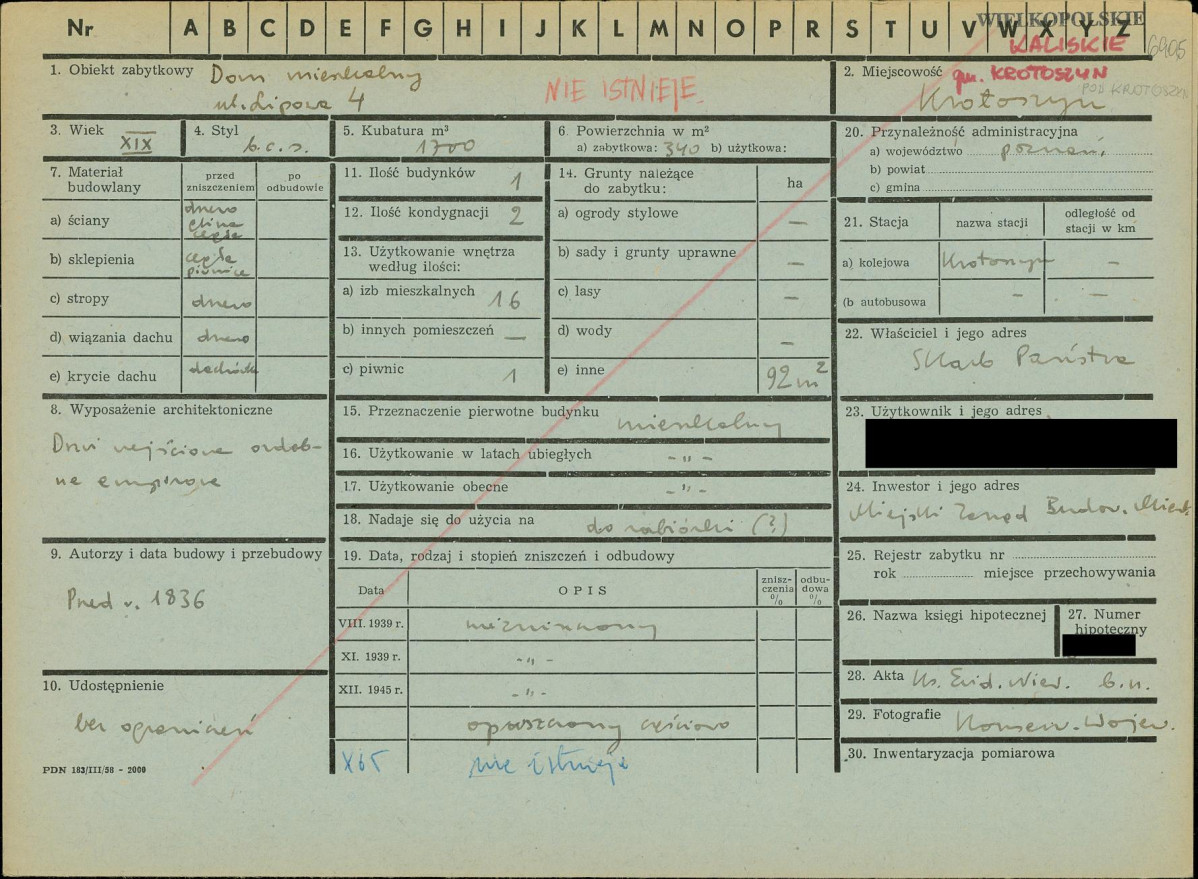 Nr A B C D E F G H I J K L M N O P R S T U V W X Y Z
WIELKOPOLSKIE
KALISKIE
6905
1. Obiekt zabytkowy Dom mieszkalny
ul. Lipowa 4
NIE ISTNIEJE
2. Miejscowość gm. KROTOSZYN
POW KROTOSZYN
Krotoszyn
3. Wiek XIX
4. Styl b.c.s.
5. Kubatura m³
1700
6. Powierzchnia w m²
a) zabytkowa: 340 b) użytkowa:
20. Przynależność administracyjna
a) województwo poznań.
b) powiat
c) gmina
7. Materiał budowlany
przed zniszczeniem
po odbudowie
a) ściany drewno glina cegła
b) sklepienia cegła piwnice
c) stropy drewno
d) wiązania dachu drewno
e) krycie dachu dachówka
11. Ilość budynków 1
12. Ilość kondygnacji 2
13. Użytkowanie wnętrza według ilości:
a) izb mieszkalnych 16
b) innych pomieszczeń —
c) piwnic 1
14. Grunty należące do zabytku:
ha
a) ogrody stylowe —
b) sady i grunty uprawne —
c) lasy —
d) wody —
e) inne 92 m²
21. Stacja
nazwa stacji
odległość od stacji w km
a) kolejowa Krotoszyn —
(b autobusowa — —
22. Właściciel i jego adres
Skarb Państwa
8. Wyposażenie architektoniczne
Drzwi wejściowe ozdob-
ne empirowe
15. Przeznaczenie pierwotne budynku mieszkalny
16. Użytkowanie w latach ubiegłych - „ -
17. Użytkowanie obecne - „ -
18. Nadaje się do użycia na do rozbiórki (?)
23. Użytkownik i jego adres
24. Inwestor i jego adres
Miejski Zarząd Budow. Mieszk.
9. Autorzy i data budowy i przebudowy
Przed r. 1836
19. Data, rodzaj i stopień zniszczeń i odbudowy
Data
OPIS
znisz-
czenia
%
odbu-
dowa
%
VIII. 1939 r. niezniszczony
XI. 1939 r. - „ -
XII. 1945 r. - „ -
opuszczony częściowo
X 65 nie istnieje
25. Rejestr zabytku nr
rok miejsce przechowywania
26. Nazwa księgi hipotecznej
27. Numer hipoteczny
28. Akta Ks. Ewid. Nier. b.n.
29. Fotografie Konserw. Wojew.
30. Inwentaryzacja pomiarowa
10. Udostępnienie
bez ograniczeń
PDN 183/III/58 - 2000